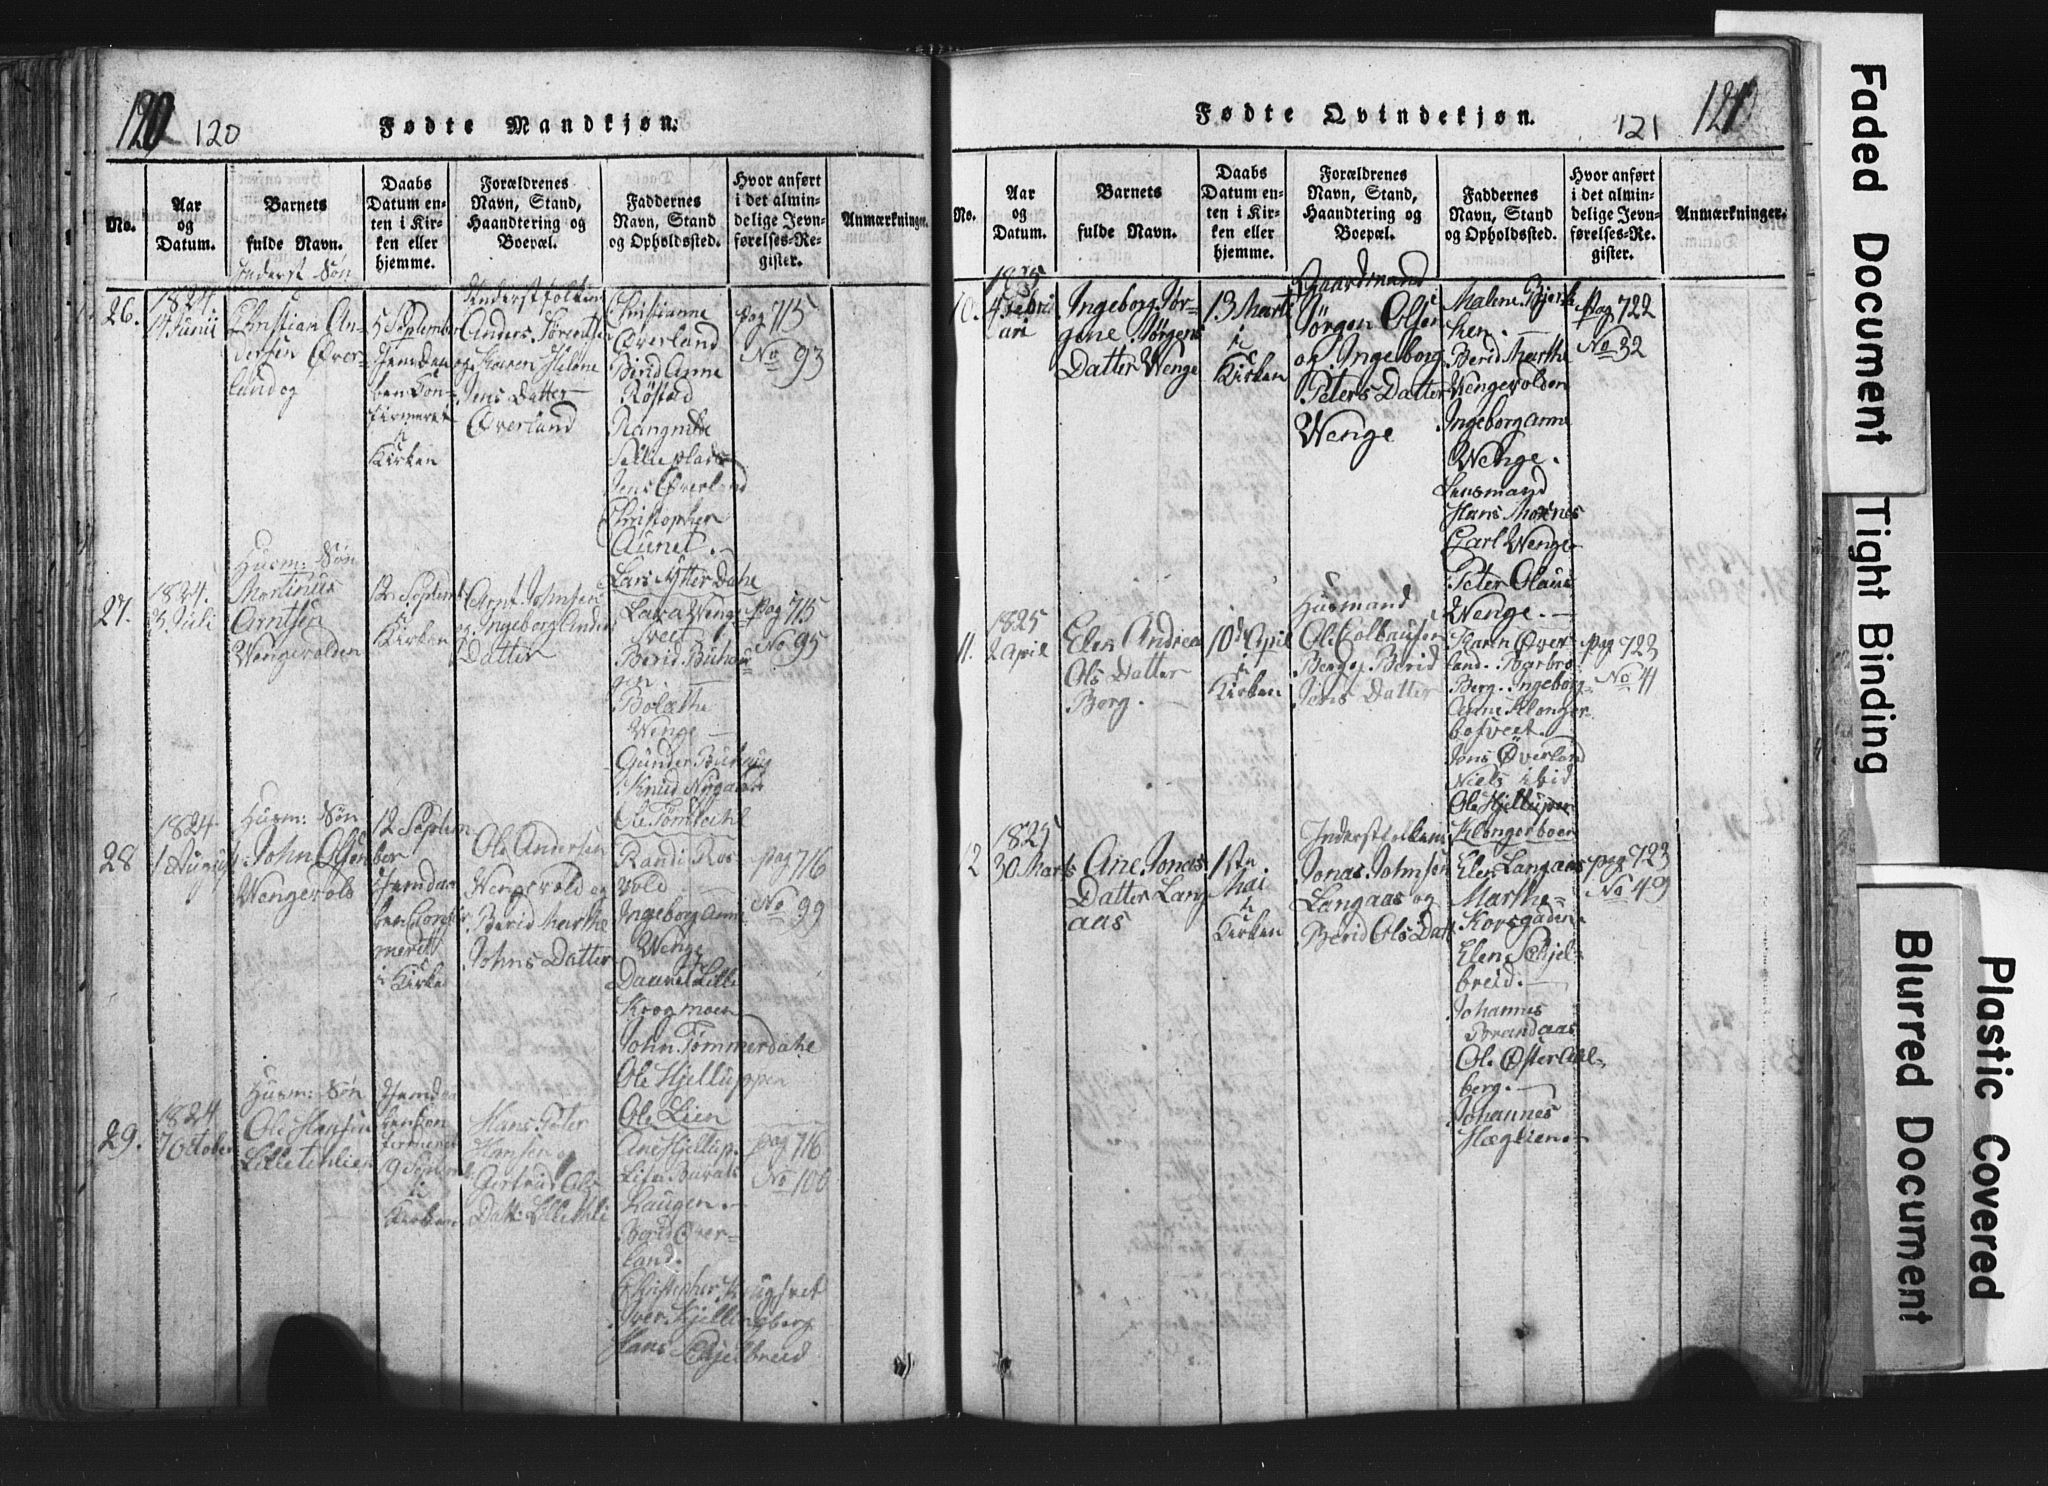 120 120
Fødte Mandkjøn.
No.
Aar
og
Datum.
Barnets
fulde Navn.
Daabs
Datum en-
ten i Kir-
ken eller
hjemme.
Forældrenes
Navn, Stand,
Haandtering og
Boepæl.
Faddernes
Navn, Stand
og Opholdssted.
Hvor anført
i det almin-
delige Jevn-
førelses-Re-
gister.
Anmærkninger.
26.
1824
Inderst Søn
Christian An-
dersen Øver-
land og
5 September
Kirken
Anders
og Karen Helene
Jens Datter
Øverland
Christianne
Øverland
Anne
Røstad
Jens Øverland
Christopher
Aunet.
Lars Ytter Dahl
Pag 715
No 93
27.
1824.
3 Juli
Husm: Søn
Martinus
Arntsen
Wengevolden
12 Septemb
i
Kirken
Arnt Johnsen
og Ingeborg Anders
Datter
Berid Buhau
gen.
Wenge
Gunder Buhaug
Knud Nygaard
Pag 715
No 95
28
1824
1 August
Husm: Søn
John Olsen
Wengevold
12 Septem
ber
i Kirken
Ole Andersen
Wengevold og
Berid Marthe
Johns Datter
Randi Ros
vold
Ingeborg Anne
Wenge
Krogmoen
John Tømmerdahl
Ole Hjelluppen
Ole Lien
Pag 716
No 99
29.
1824
7 October
Husm: Søn
Ole Hansen
19 Septemb
i
Kirken
Hans Peter
Hansen og
Gertrud Ols
Datt.
Ane Hjellup
Haugen.
Berid Øver-
land.
Iver Hjellingberg
Hans Schjelbreid
Pag 716
No 100
Fødte Qvindekjøn.
121 121
No.
Aar
og
Datum.
Barnets
fulde Navn.
Daabs
Datum en-
ten i Kir-
ken eller
hjemme.
Forældrenes
Navn, Stand,
Haandtering og
Boepæl.
Faddernes
Navn, Stand
og Opholdssted.
Hvor anført
i det almin-
delige Jevn-
førelses-Re-
gister.
Anmærkninger.
10.
1825
4 Febru
ari
Ingeborg Jør-
gene Jørgens
Datter Wenge
13 Marti
i
Kirken
Gaardmand
Jørgen Olsen
og Ingeborg
Peters Datter
Wenge
Malene Bjerk
ken.
Berid Marthe
Wengevolden
Ingeborg Anne
Wenge.
Lensmand
Hans Moxnes
Carl Wenge
Peter Olaus
Wenge.
Pag 722
No 32
11.
1825
2 April
Elen Andrea
Ols Datter
Berg.
10de April
i
Kirken
Husmand
Ole
Berg og Berid
Jens Datter
Karen Øver
land. Barbro
Berg. Ingeborg
Anne Klonger
bofveet.
Jens Øverland
Niels
Ole Hjellupen
Klongerboen
Pag 723
No 41
12
1825
30 Marts
Ane Jonas
Datter Lang
aas
1ste
Mai
i
Kirken
Jonas Johnsen
Langaas og
Berid Ols Datt
Elen Langaas
Marthe
Korsgaden
Elen Schjel-
breid.
Johannes
Brandaas
Ole Østeraal-
berg.
Johannes
Hæglien
Pag 723
No 49
Faded Document
Tight Binding
Plastic Covered
Blurred Document